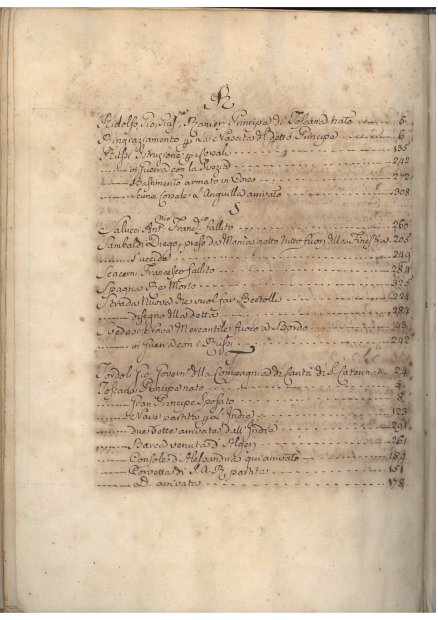 R
Ridolfo, Gio, Gius. Ranieri Principe di Toscana nato 6
Ringraziamento p la Nascita di detto Principe 6
Russi Istruzione p Corsali 135
in Guerra con la Svezia 242
Bastimento armato in Corso 272
cunei Corsale a l'Anguilla arrivato 308
S
Salucci Ant. Franc. fallito 260
Sambaldi Diego, preso da Mania getto tutto fuori della Finestra 205
Suicida 249
Scacerni Francesco fallito 284
Spagna Re Morto 325
Strada Nuova che vuol far Bertolli 224
disegno della detta 284
Svedese Nave Mercantile fuoco a Bordo 143
in Guerra con i Russi 242
T
Tordoli Gio. Govern. della Compagnia di Carità di S. Caterina 24
Toscana Principe nato 5
Gran Principe Sposato 8
Nave partita p l'Indie 123
due dette arrivate dall'Indie 291
Barca venuta d'Algeri 261
Console d'Alessandria qui arrivato 186
Corvetta di S. A. R. partita 151
D. arrivata 178